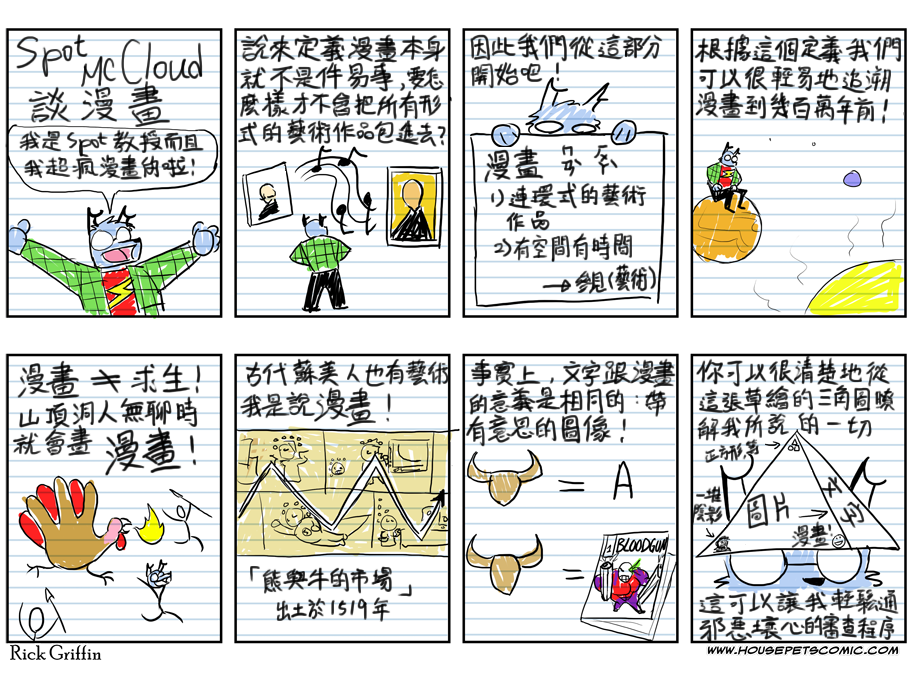 Spot
McCloud
談漫畫
我是Spot教授而且
我超瘋漫畫的啦!
說來定義漫畫本身
就不是件易事,要怎
麼樣才不會把所有形
式的藝術作品包進去?
因此我們從這部分
開始吧!
漫畫 ㄇㄢˋ ㄏㄨㄚˋ
1)連環式的藝術
作品
2)有空間有時間
→參見(藝術)
根據這個定義我們
可以很輕易地追溯
漫畫到幾百萬年前!
漫畫≠求生!
山頂洞人無聊時
就會畫 漫畫!
古代蘇美人也有藝術
我是說漫畫!
「熊與牛的市場」
出土於1519年
事實上,文字跟漫畫
的意義是相同的:帶
有意思的圖像!
= A
=
1 BLOODGUM
你可以很清楚地從
這張草繪的三角圖瞭
解我所說的一切
正方形,等
一堆
陰影
圖片
文字
漫畫!
這可以讓我輕鬆通
邪惡壞心的審查程序
Rick Griffin
WWW.HOUSEPETSCOMIC.COM